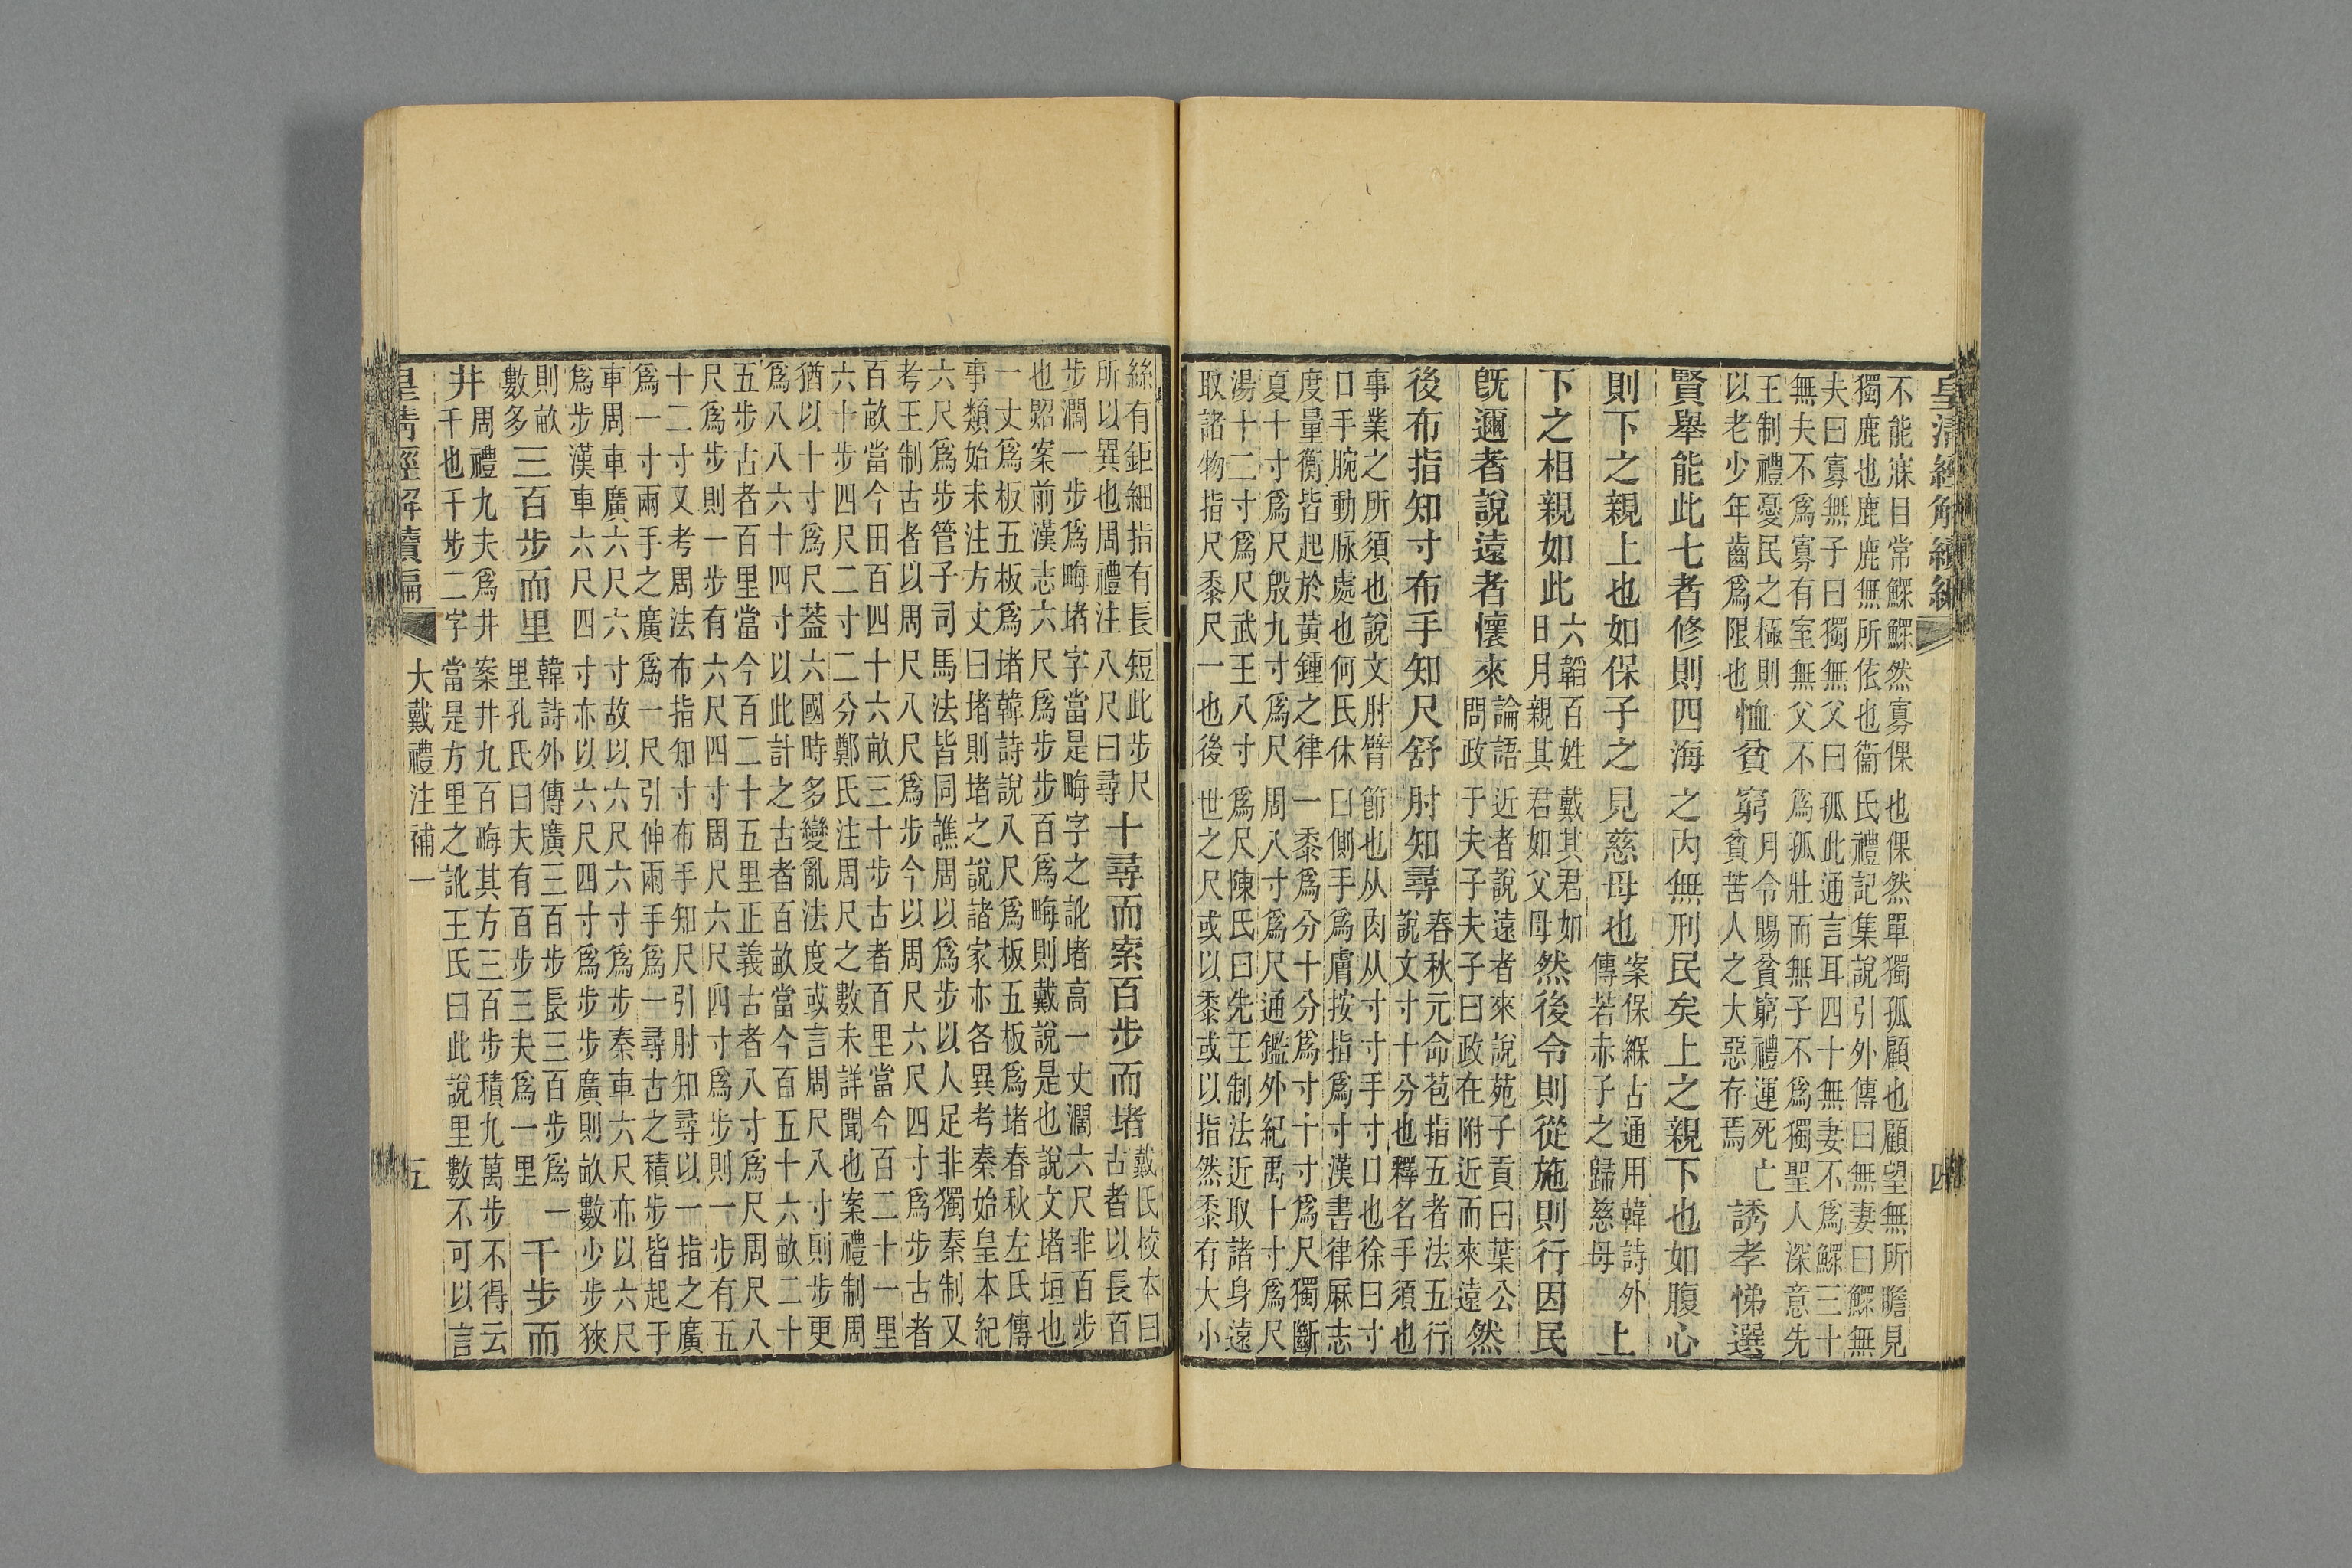 皇清經解續編 四
不能寐目常鰥鰥然寡倮也倮然單獨孤顧也顧望無所瞻見
獨鹿也鹿鹿無所依也衞氏禮記集說引外傳曰無妻曰鰥無
夫曰寡無子曰獨無父曰孤此通言耳四十無妻不爲鰥三十
無夫不爲寡有室無父不爲孤壯而無子不爲獨聖人深意先
王制禮憂民之極則以老少年齒爲限也恤貧窮月令賜貧窮禮運死亡貧苦人之大惡存焉誘孝悌選
賢舉能此七者修則四海之內無刑民矣上之親下也如腹心
則下之親上也如保子之見慈母也案保緥古通用韓詩外傳若赤子之歸慈母上
下之相親如此六韜百姓戴其君如日月親其君如父母然後令則從施則行因民
旣邇者說遠者懷來論語近者說遠者來說苑子貢曰葉公問政于夫子夫子曰政在附近而來遠然
後布指知寸布手知尺舒肘知尋春秋元命苞指五者法五行說文寸十分也釋名手須也
事業之所須也說文肘臂節也从肉从寸寸手寸口也徐曰寸
口手腕動脉處也何氏休曰側手爲膚按指爲寸漢書律厤志
度量衡皆起於黃鍾之律一黍爲分十分爲寸十寸爲尺獨斷
夏十寸爲尺殷九寸爲尺周八寸爲尺通鑑外紀禹十寸爲尺
湯十二寸爲尺武王八寸爲尺陳氏曰先王制法近取諸身遠
取諸物指尺黍尺一也後世之尺或以黍或以指然黍有大小
絲有鉅細指有長短此步尺所以異也周禮注八尺曰尋十尋而索百步而堵戴氏校本曰古者以長百
步濶一步爲畮堵字當是畮字之訛堵高一丈濶六尺非百步
也案前漢志六尺爲步步百爲畮則戴說是也說文堵垣也
一丈爲板五板爲堵韓詩說八尺爲板五板爲堵春秋左氏傳
事類始未注方丈曰堵則堵之說諸家亦各異考秦始皇本紀
六尺爲步管子司馬法皆同譙周以爲步以人足非獨秦制又
考王制古者以周尺八尺爲步今以周尺六尺四寸爲步古者
百畝當今田百四十六畝三十步古者百里當今百二十一里
六十步四尺二寸二分鄭氏注周尺之數未詳聞也案禮制周
猶以十寸爲尺葢六國時多變亂法度或言周尺八寸則步更
爲八八六十四寸以此計之古者百畝當今百五十六畝二十
五步古者百里當今百二十五里正義古者八寸爲尺周尺八
尺爲步則一步有六尺四寸周尺六尺四寸爲步則一步有五
十二寸又考周法布指知寸布手知尺引肘知尋以一指之廣
爲一寸兩手之廣爲一尺引伸兩手爲一尋古之積步皆起于
車周車廣六尺六寸故以六尺六寸爲步秦車六尺亦以六尺
爲步漢車六尺四寸亦以六尺四寸爲步步廣則畝數少步狹
則畝數多三百步而里韓詩外傳廣三百步長三百步爲一里孔氏曰夫有百步三夫爲一里千步而
井周禮九夫爲井案井九百畮其方三百步積九萬步不得云千也千步二字當是方里之訛王氏曰此說里數不可以言
皇清經解續編 大戴禮注補一 五